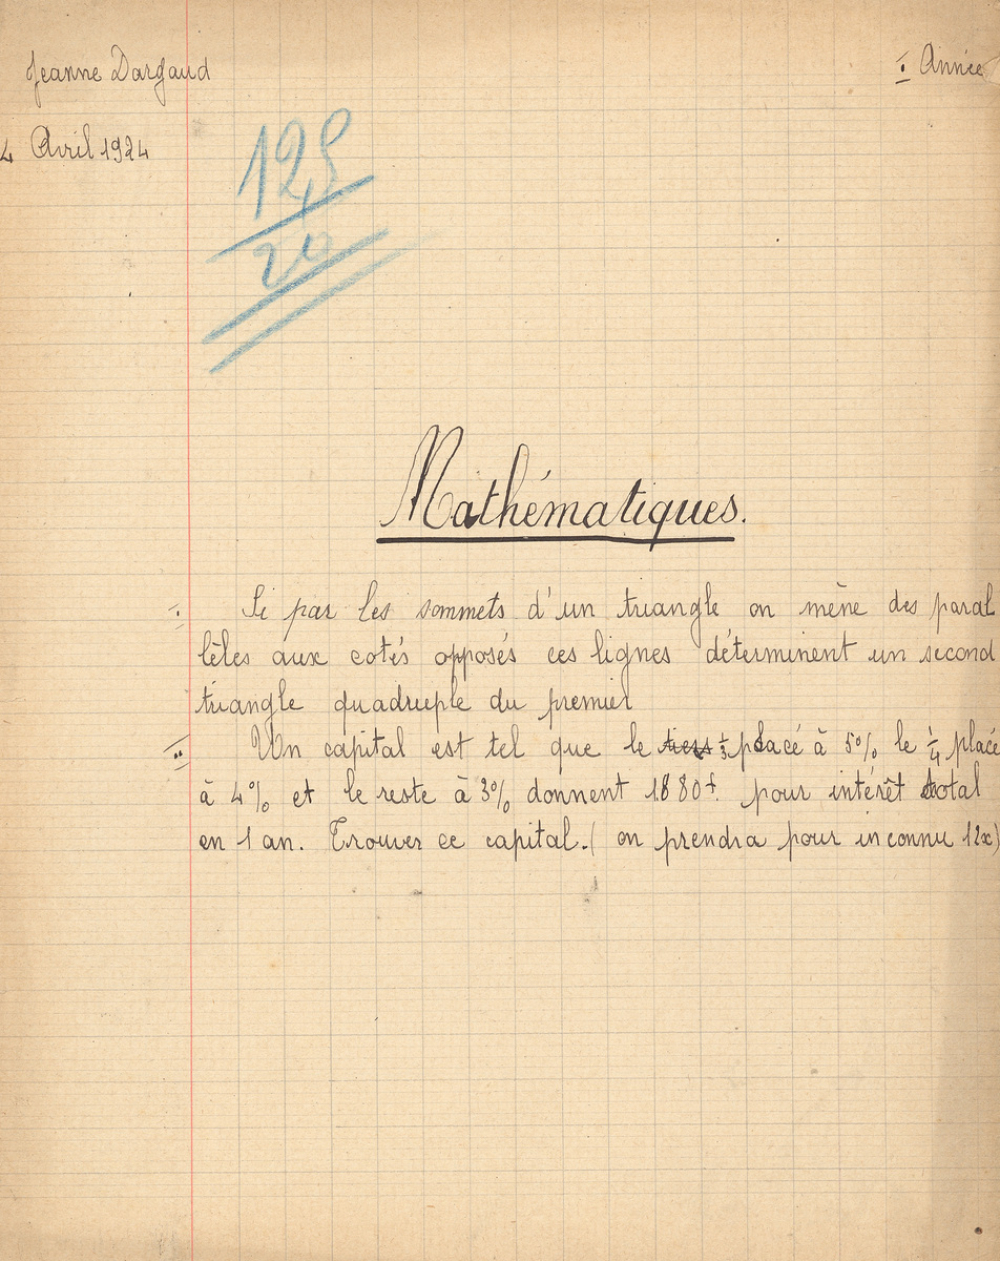 Jeanne Dargaud
I. Année
4 Avril 1924
12,5
20
Mathématiques.
I. Si par les sommets d'un triangle on mène des paral
lèles aux cotés opposés ces lignes déterminent un second
triangle quadruple du premier
II. Un capital est tel que le tiers 1/3 placé à 5% le 1/4 placé
à 4% et le reste à 3% donnent 1880f. pour intérêt total
en 1 an. Trouver ce capital. (on prendra pour inconnu 12x)